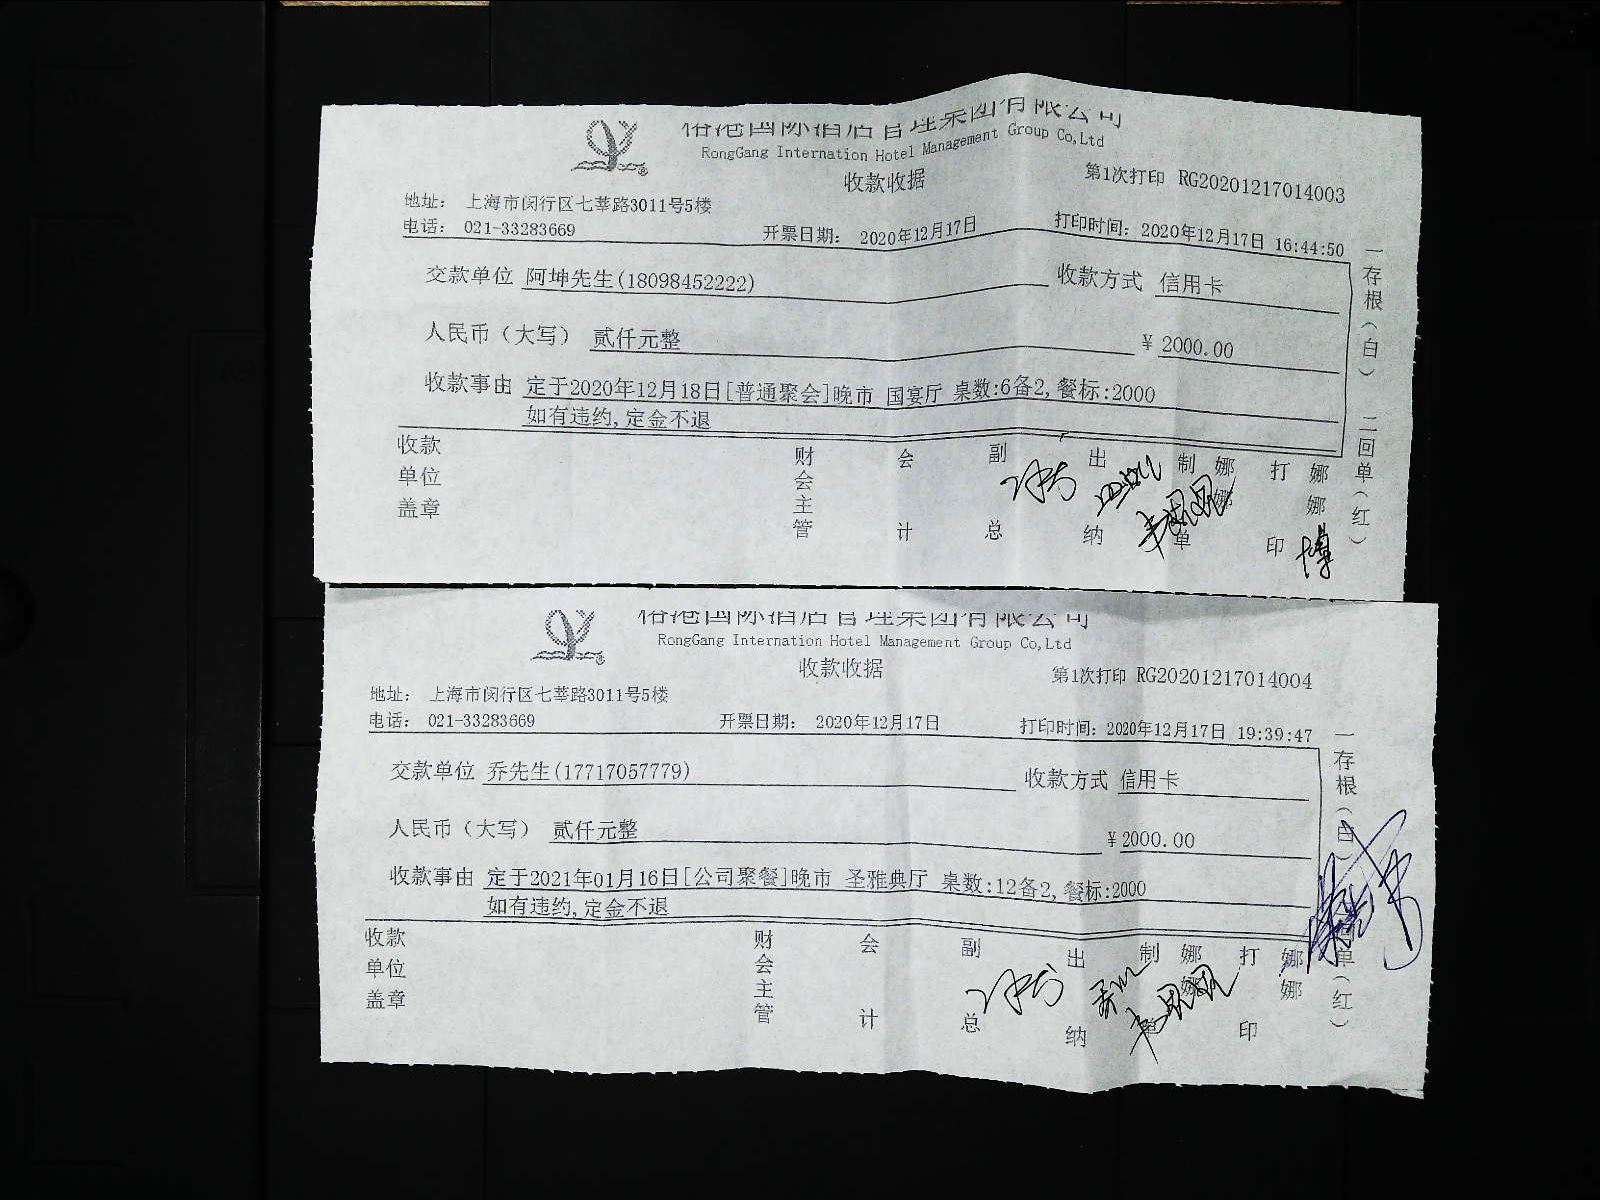 国际酒店管理集团有限公司
RongGang Internation Hotel Management Group Co,Ltd
收款收据
第1次打印 RG20201217014003
地址： 上海市闵行区七莘路3011号5楼
电话： 021-33283669 开票日期： 2020年12月17日 打印时间：2020年12月17日 16:44:50
交款单位 阿坤先生(18098452222) 收款方式 信用卡
人民币（大写） 贰仟元整 ¥2000.00
收款事由 定于2020年12月18日[普通聚会]晚市 国宴厅 桌数:6备2,餐标:2000
如有违约,定金不退
收款单位盖章 财会主管 会计 副总 出纳 制单 娜娜 打印 娜娜
博
一存根（白） 二回单（红）
国际酒店管理集团有限公司
RongGang Internation Hotel Management Group Co,Ltd
收款收据
第1次打印 RG20201217014004
地址： 上海市闵行区七莘路3011号5楼
电话： 021-33283669 开票日期： 2020年12月17日 打印时间：2020年12月17日 19:39:47
交款单位 乔先生(17717057779) 收款方式 信用卡
人民币（大写） 贰仟元整 ¥2000.00
收款事由 定于2021年01月16日[公司聚餐]晚市 圣雅典厅 桌数:12备2,餐标:2000
如有违约,定金不退
收款单位盖章 财会主管 会计 副总 出纳 制单 娜娜 打印 娜娜
一存根（白） 回单（红）